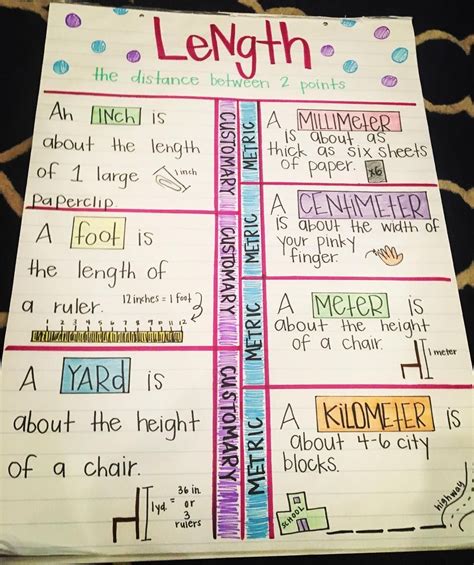 Length
the distance between 2 points
An INCH is
about the length
of 1 large
paperclip.
1 inch
A foot is
the length of
a ruler.
12 inches = 1 foot
1 2 3 4 5 6 7 8 9 10 11 12
A YARd is
about the height
of a chair.
1yd. =
36 in
or
3
rulers
CUSTOMARY
CUSTOMARY
CUSTOMARY
METRIC
METRIC
METRIC
METRIC
A MILLIMETER
is about as
thick as six sheets
of paper.
x6
A CENTIMETER
is about the width of
your pinky
finger.
A METER is
about the height
of a chair.
1 meter
A KILOMETER is
about 4-6 city
blocks.
SCHOOL
highway